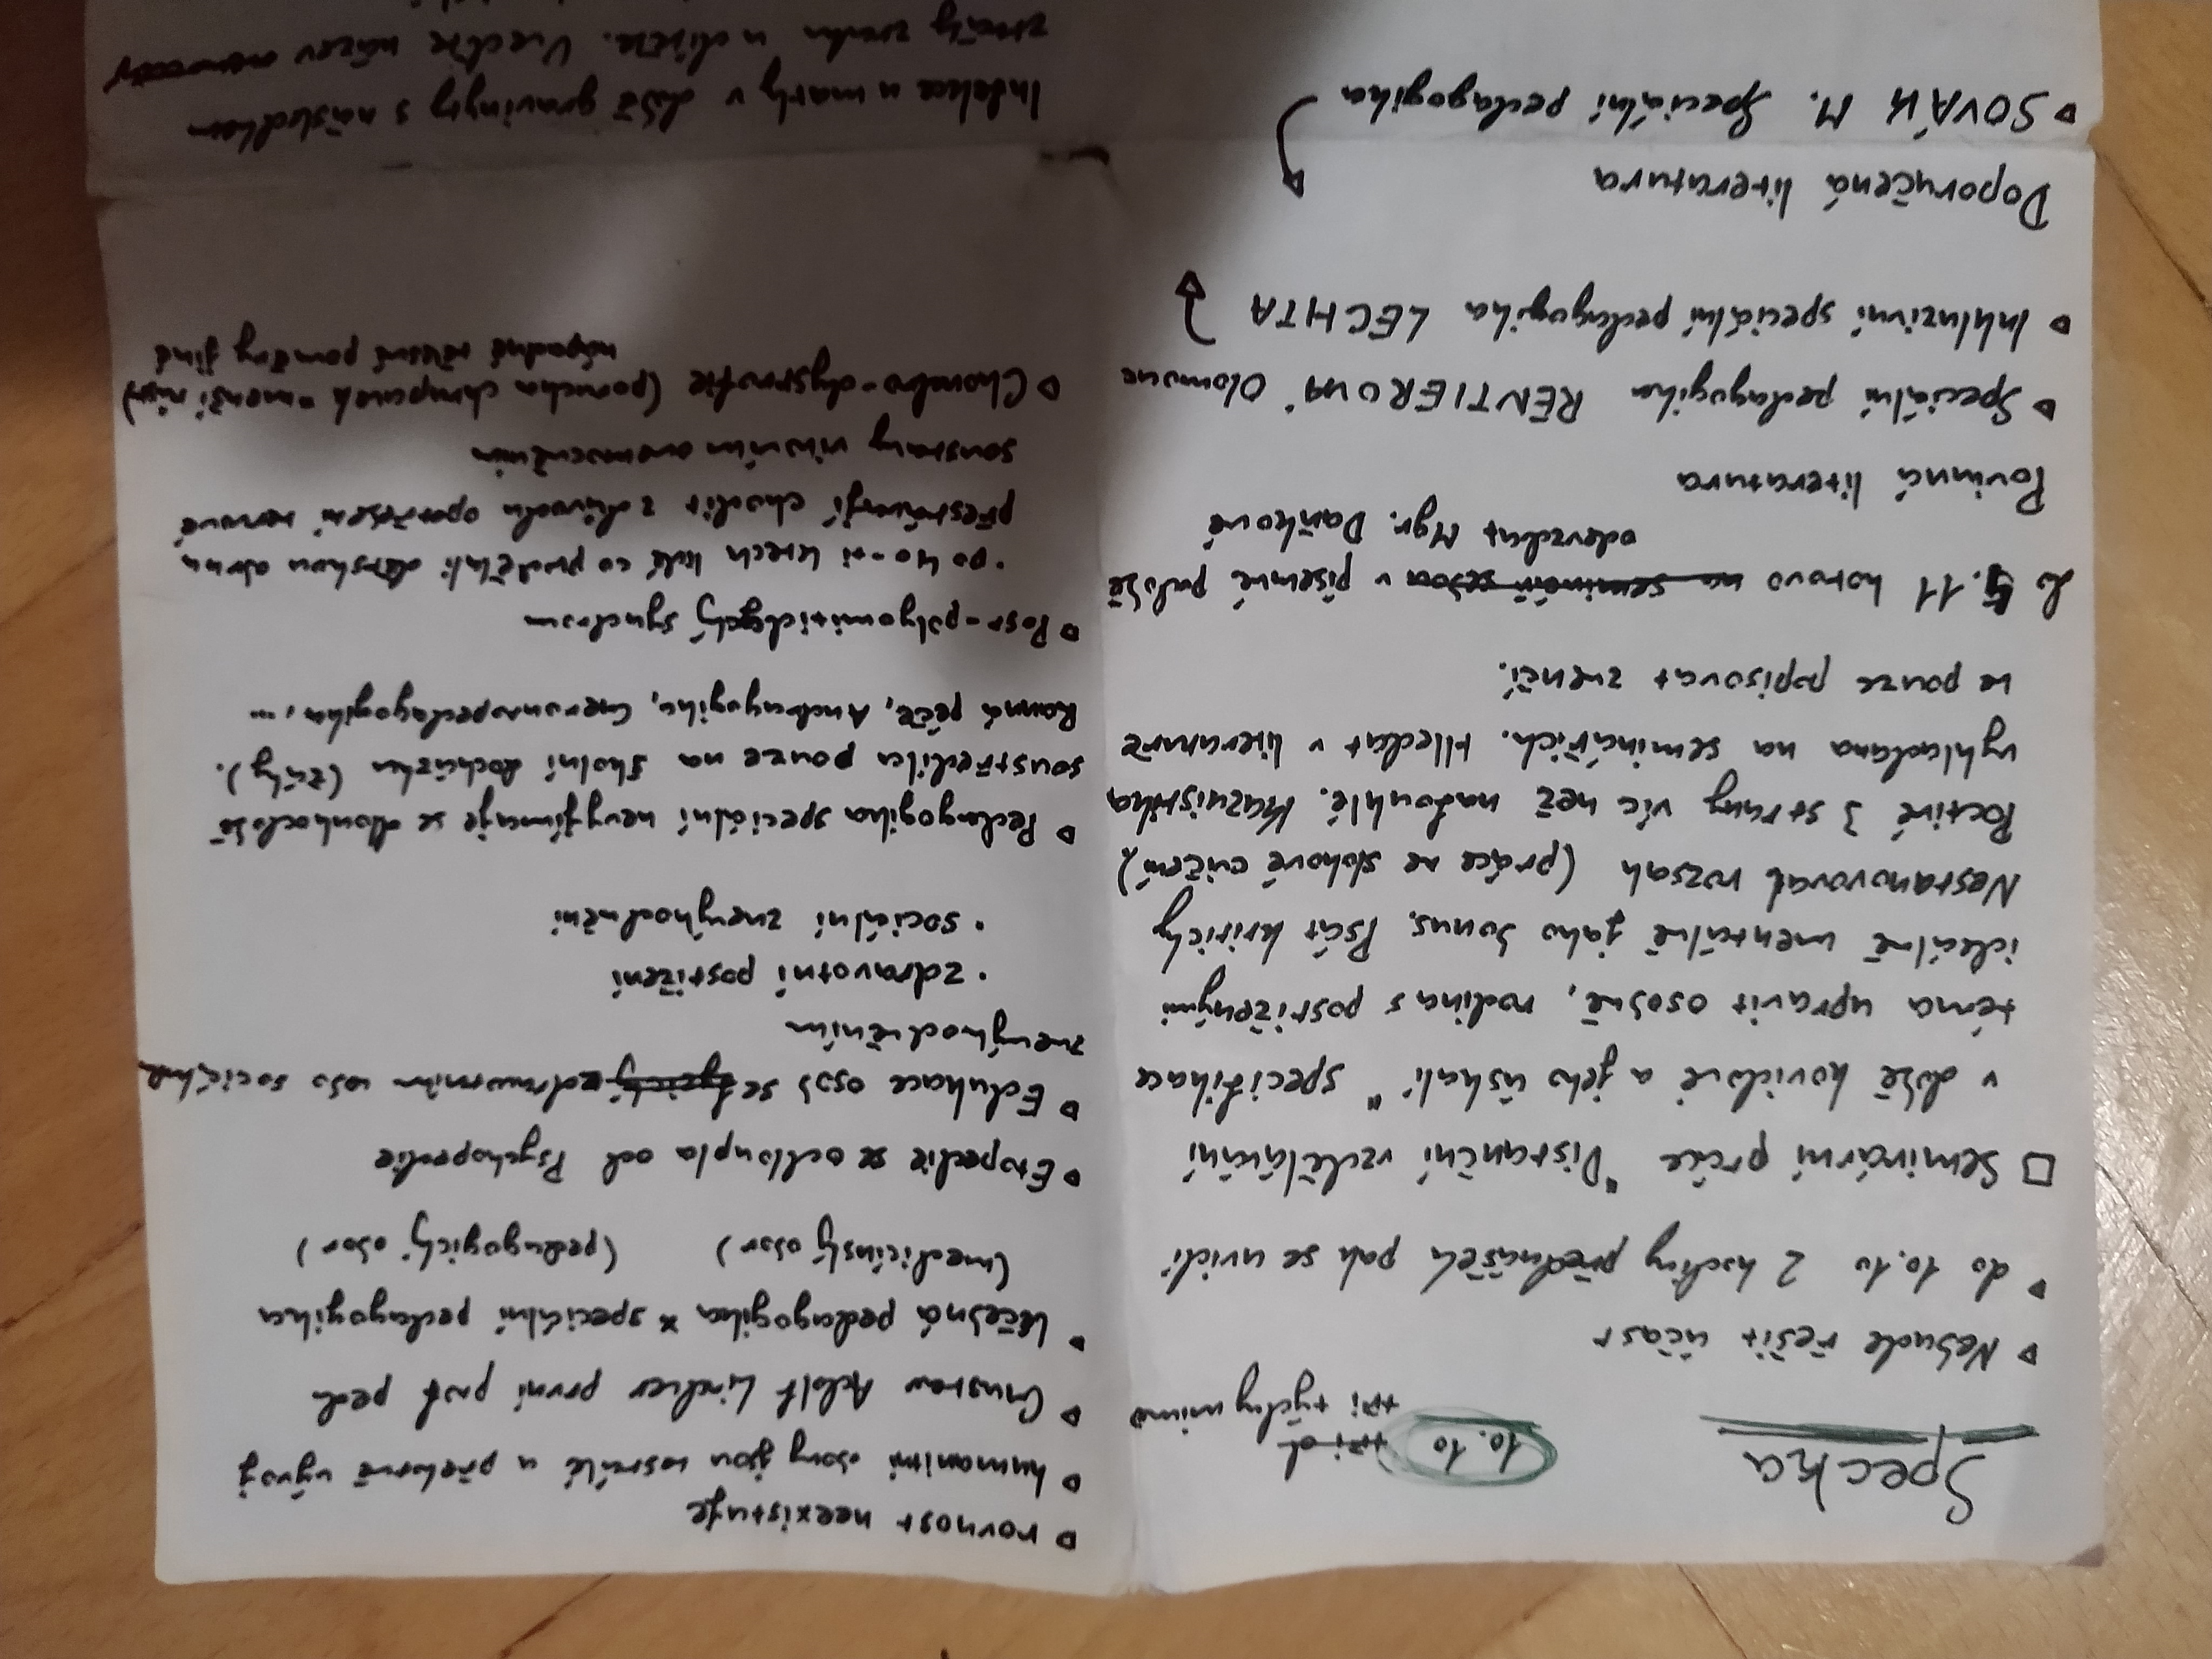 Specka
10.10
tři d
tři týdny mimo
Nebude řešit účast
do 10.10 2 hodiny přednášek pak se uvidí
Seminární práce "Distanční vzdělávání
v době kovidové a jeho úskalí" specifikace
téma upravit osobně, rodina s postiženými
ideálně mentálně jako bonus. Psát kriticky
Nestanovoval rozsah (práce ne slohové cvičení)
Poctivé 3 strany víc než nafouklé. Kazuistika
vykládana na seminářích. Hledat v literatuře
ne pouze popisovat zvenčí.
Do 5.11 hotovo na seminář v písemné podobě
odevzdat Mgr. Daňkové
Povinná literatura
Speciální pedagogika RENTIEROVÁ Olomouc
Inkluzivní speciální pedagogika LECHTA
Doporučená literatura
SOVÁK M. Speciální pedagogika
rovnost neexistuje
humanitní obory jsou vzrůslé a překotně vývoj
Gustav Adolf Lindner první prof ped
léčebná pedagogika x speciální pedagogika
(medicínský obor) (pedagogický obor)
Etopedie se odloupla od Psychopedie
Edukace osob se zdravotním nebo sociálním
znevýhodněním
• zdravotní postižení
• sociální znevýhodnění
Pedagogika speciální nevyjímaje se dlouhodobě
soustředila pouze na školní docházku (žáky).
Ranná péče, Andragogika, Gerontopedagogika, ...
Post-polyomitidický syndrom
• po 40-ti letech lidé co prodělali dětskou obrnu
přestávají chodit z důvodu opotřebení nervové
soustavy virovým onemocněním
Chondro-dystrofie (porucha chrupavek = menší růst)
nápadné tělesné poměry jiné
Infekce u matky v době gravidity s následkem
ztráty zraku u dítěte. Uveďte název nemoci